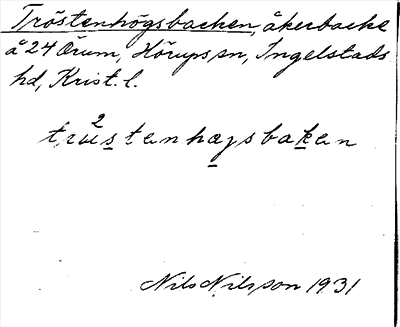 Tröstenhögsbacken, åkerbacke
å 24 Örum, Hörups sn, Ingelstads
hd, Krist. l.
Nils Nilsson 1931